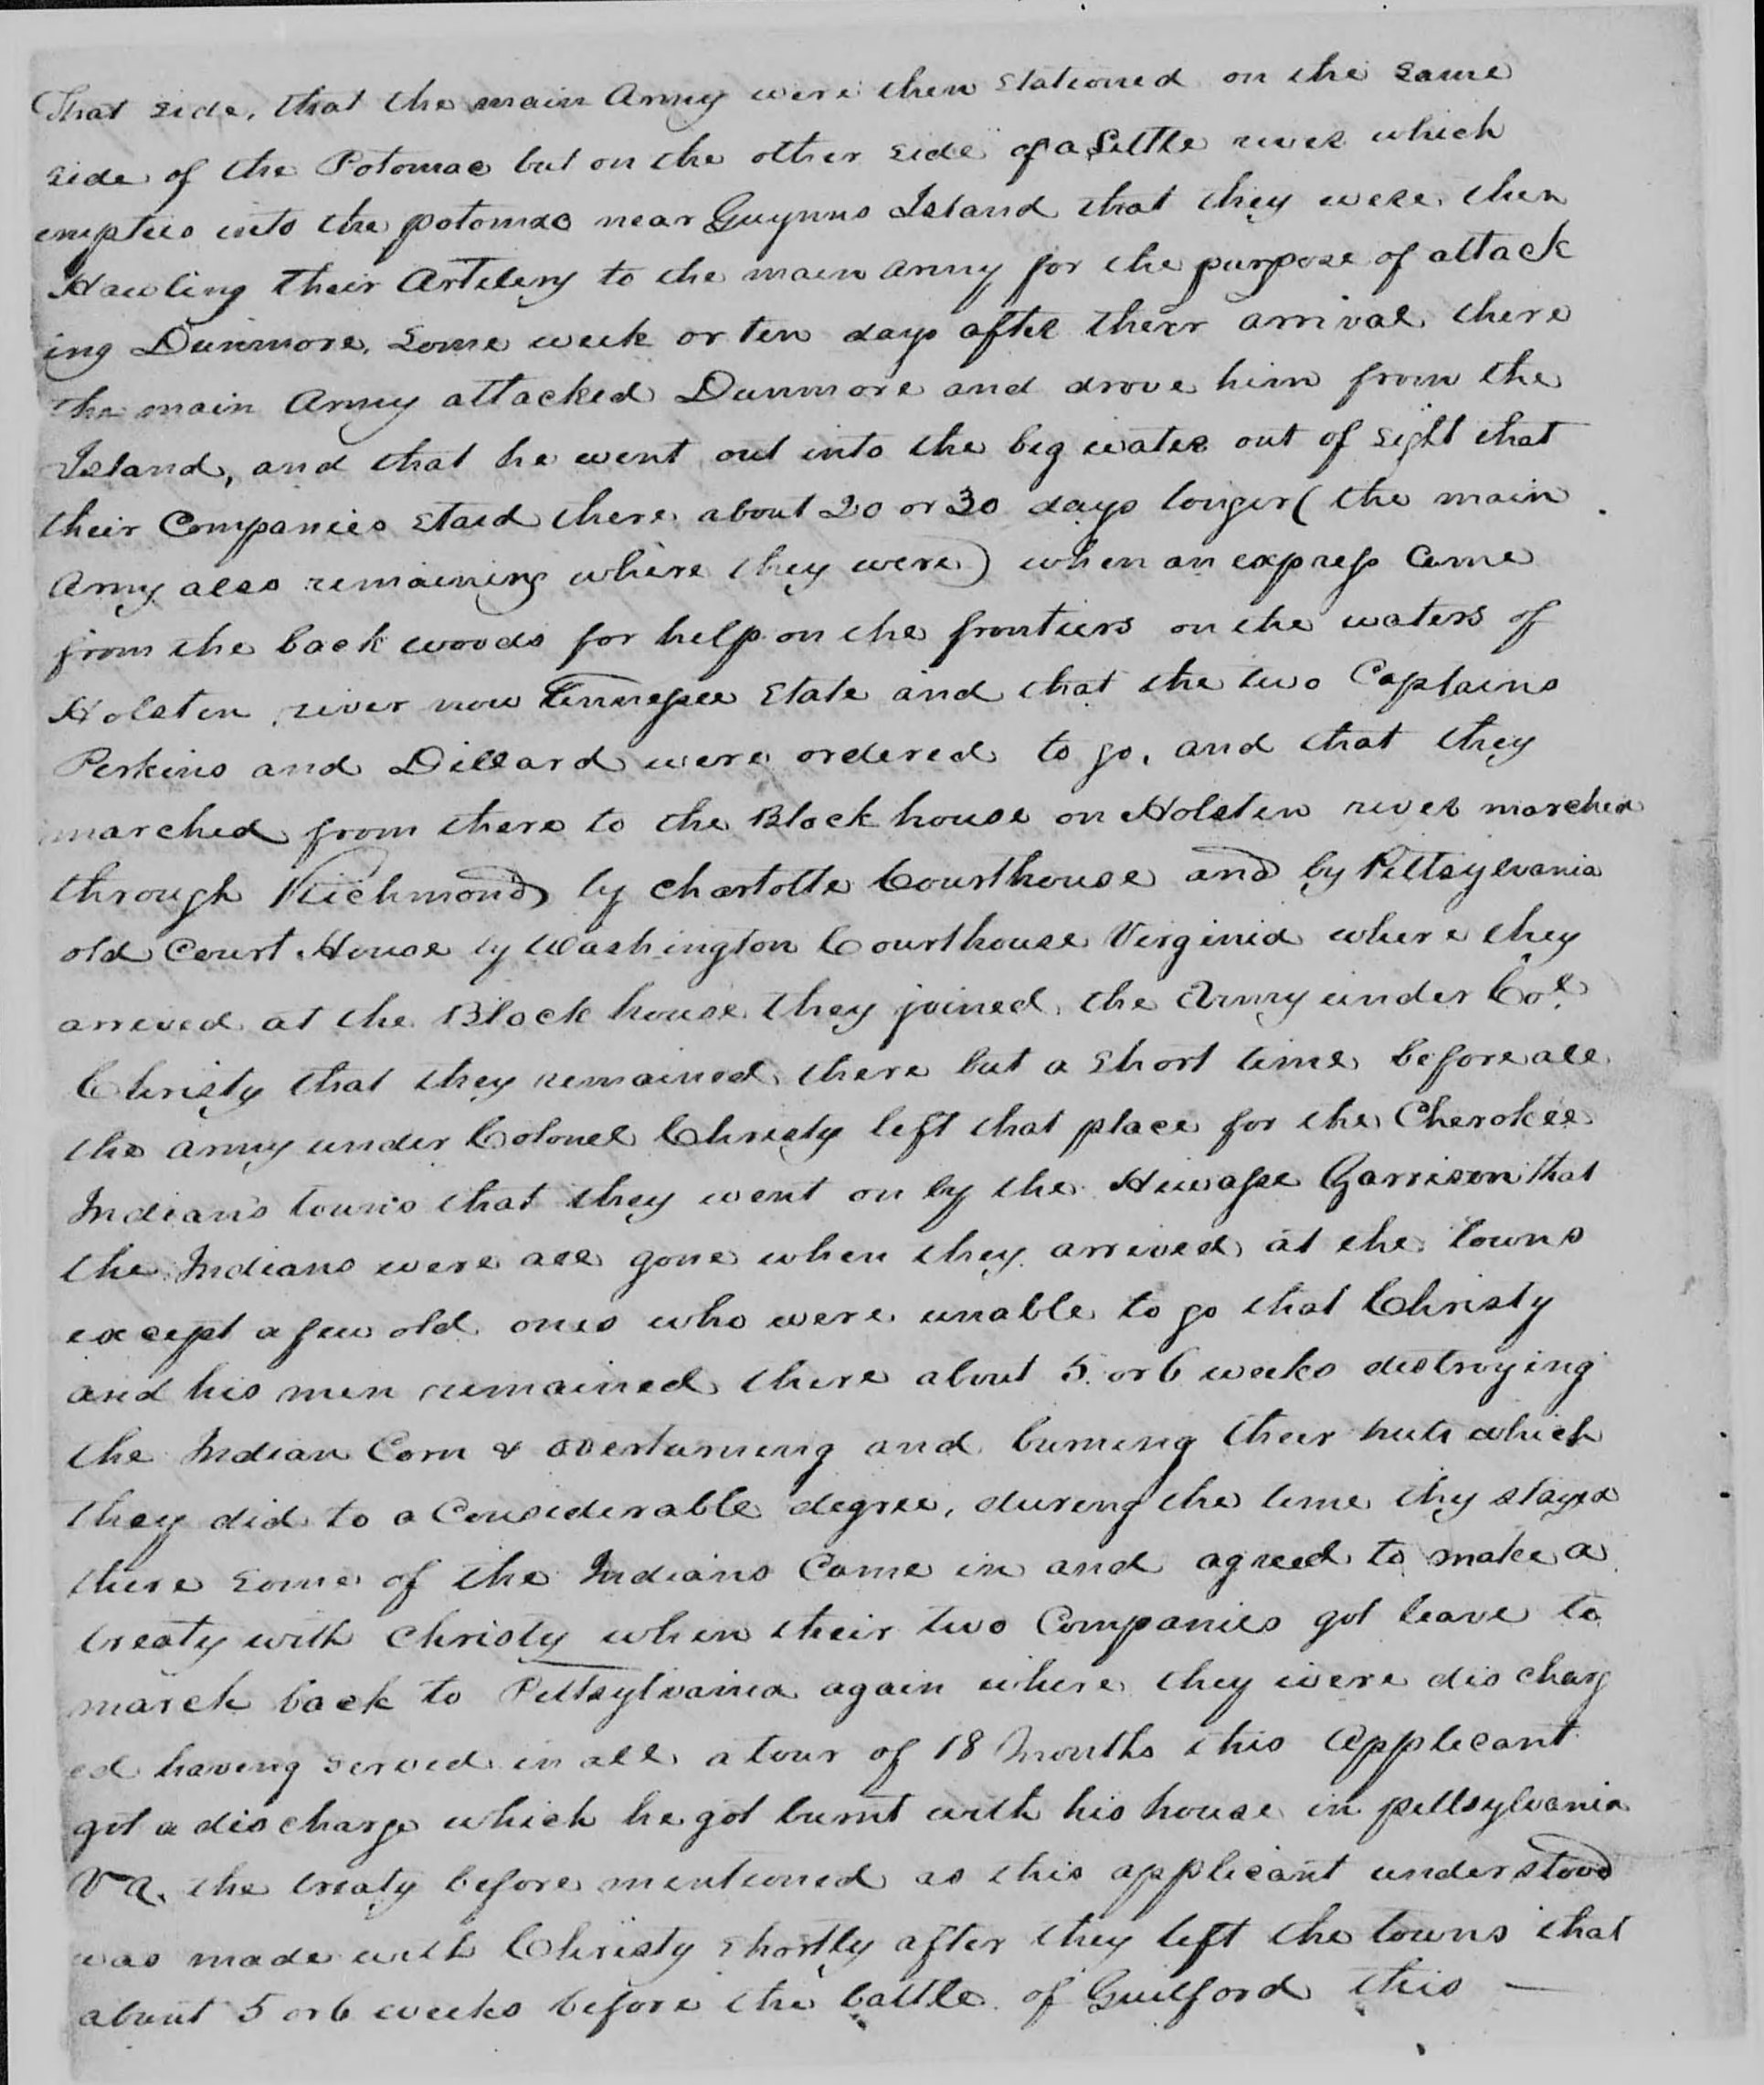 That side, that the main Army were then stationed on the same
side of the Potomac but on the other side of a little river which
empties into the potomac near Guynns Island that they were then
Hawling their Artilery to the main army for the purpose of attack
ing Dunmore. Some week or ten days after their arrival there
the main Army attacked Dunmore and drove him from the
Island, and that he went out into the big water out of sight that
their Companies staid there about 20 or 30 days longer (the main
Army also remaining where they were) when an express came
from the back woods for help on the frontiers on the waters of
Holsten river now Tennessee State and that the two Captains
Perkins and Dillard were ordered to go, and that they
marched from there to the Block house on Holsten river marched
through Richmond by Charlotte Courthouse and by Pittsylvania
old Court House by Washington Courthouse Virginia where they
arrived at the Block house they joined the Army under Col.
Christy that they remained there but a short time before all
the army under Colonel Christy left that place for the Cherokee
Indians towns that they went on by the Hiwassee Garrison that
the Indians were all gone when they arrived at the towns
except a few old ones who were unable to go that Christy
and his men remained there about 5 or 6 weeks destroying
the Indian Corn & overturning and burning their huts which
they did to a Considerable degree, during the time they stayed
there some of the Indians Came in and agreed to make a
treaty with Christy when their two Companies got leave to
march back to Pittsylvania again where they were discharg
ed having served in all a tour of 18 months this applicant
got a discharge which he got burnt with his house in pittsylvania
Va. the treaty before mentioned as this applicant understood
was made with Christy shortly after they left the towns that
about 5 or 6 weeks before the battle of Guilford this —